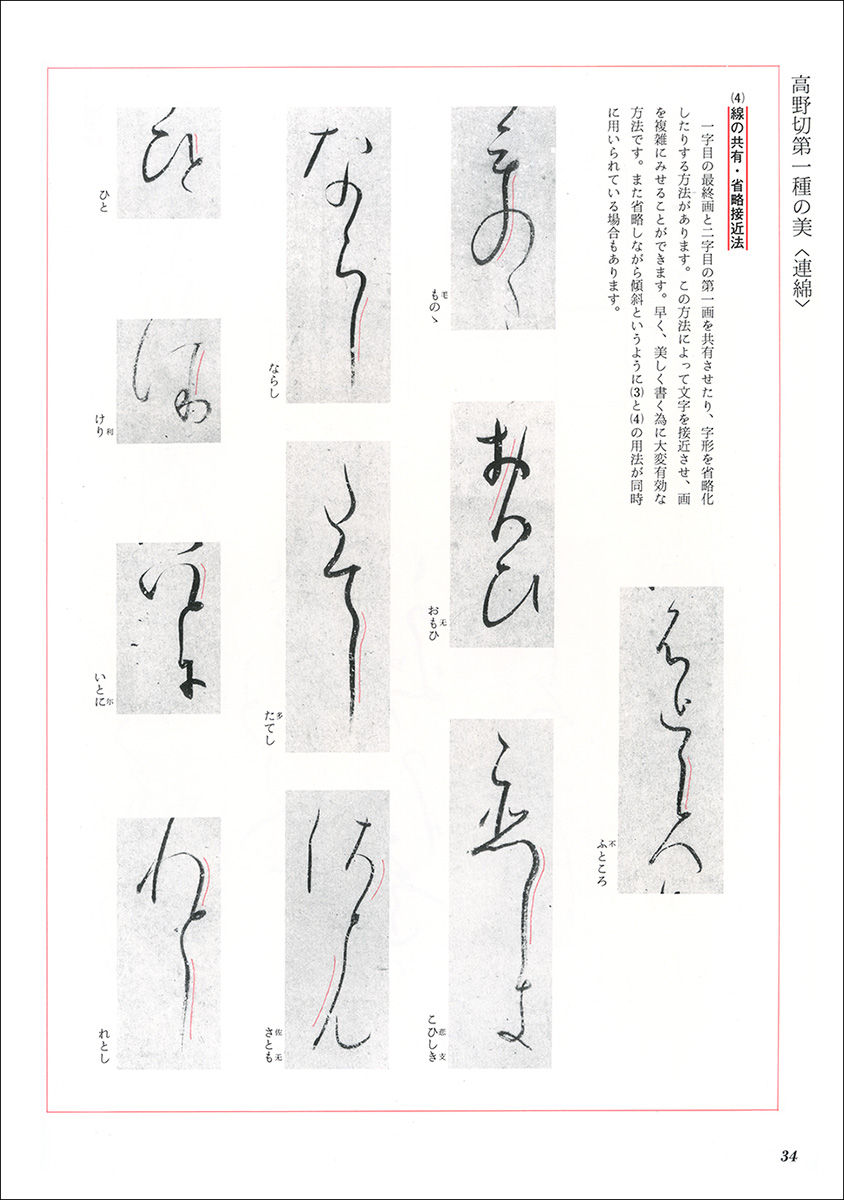 高野切第一種の美〈連綿〉
(4)線の共有・省略接近法
一字目の最終画と二字目の第一画を共有させたり、字形を省略化
したりする方法があります。この方法によって文字を接近させ、画
を複雑にみせることができます。早く、美しく書く為に大変有効な
方法です。また省略しながら傾斜というように(3)と(4)の用法が同時
に用いられている場合もあります。
不
ふところ
毛
ものゝ
无
おもひ
悲支
こひしき
ならし
多
たてし
佐无
さとも
ひと
利
けり
尓
いとに
れとし
34